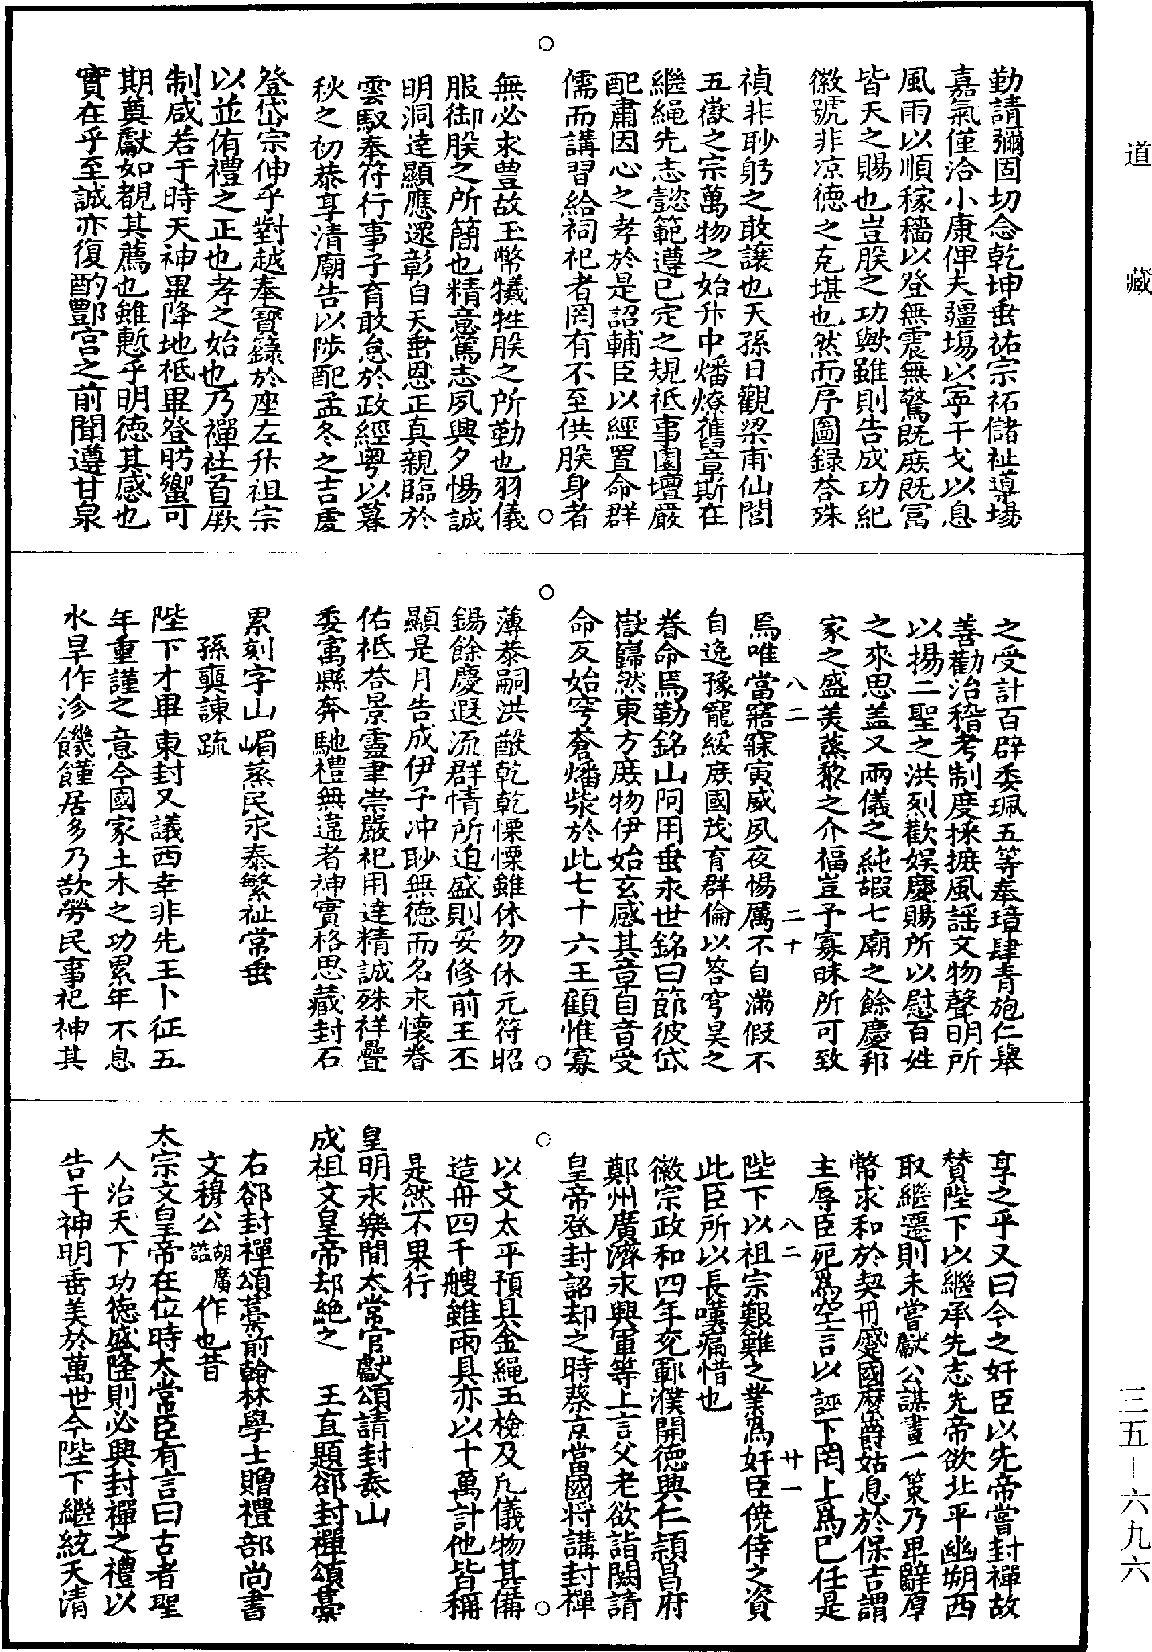 道藏
勤請彌固切念乾坤垂祐宗祏儲祉導場
嘉氣僅洽小康俾夫疆場以寧干戈以息
風雨以順稼穡以登無震無驚既庶既富
皆天之賜也豈朕之功歟雖則告成功紀
徽號非凉德之克堪也然而序圖録荅殊
禎非眇躬之敢讓也天孫日觀梁甫仙閭
五嶽之宗萬物之始升中燔燎舊章斯在
繼繩先志懿範遵已定之規祗事園壇嚴
配肅因心之孝於是詔輔臣以經置命群
儒而講習給祠祀者罔有不至供朕身者
無必求豊故玉幣犧牲朕之所勤也羽儀
服御朕之所簡也精意篤志夙興夕惕誠
明洞達顯應遝彰自天垂恩正真親臨於
雲馭奉符行事子育敢怠於政經粤以暮
秋之初恭享清廟告以陟配孟冬之吉虔
登岱宗伸乎對越奉寶籙於座左升祖宗
以並侑禮之正也孝之始也乃禪社首厥
制咸若于時天神畢降地祗畢登肹蠁可
期奠獻如覩其薦也雖慙乎明德其感也
實在乎至誠亦復酌酆宫之前聞遵甘泉
之受計百辟委珮五等奉璋肆青施仁舉
善勸治稽考制度採摭風謡文物聲明所
以揚二聖之洪烈歡娱慶賜所以慰百姓
之來思盖又兩儀之純嘏七廟之餘慶邦
家之盛美蒸黎之介福豈予寡昧所可致
八二　二十
焉唯當寤寐寅威夙夜惕厲不自滿假不
自逸豫寵綏庶國茂育群倫以荅穹昊之
眷命焉勒銘山阿用垂永世銘曰節彼岱
嶽巋然東方庶物伊始玄感其章自昔受
命反始穹蒼燔柴於此七十六王顧惟寡
薄恭嗣洪猷乾乾慄慄雖休勿休元符昭
錫餘慶遐流群情所迫盛則妥修前王丕
顯是月告成伊予冲眇無德而名永懷眷
佑祗荅景靈聿崇嚴祀用達精誠殊祥疊
委寓縣奔馳禮無違者神實格思藏封石
累刻字山嵋蒸民永泰繁祉常垂
孫奭諫疏
陛下才畢東封又議西幸非先王卜征五
年重謹之意今國家土木之功累年不息
水旱作沴饑饉居多乃欲勞民事祀神其
享之乎又曰今之奸臣以先帝嘗封禪故
賛陛下以繼承先志先帝欲北平幽朔西
取繼遷則未嘗獻公謀畫一策乃卑辭厚
幣求和於契丹蹙國縻爵姑息於保吉謂
主辱臣死爲空言以誣下罔上爲己任是
八二　廿一
陛下以祖宗艱難之業爲奸臣僥倖之資
此臣所以長嘆痛惜也
徽宗政和四年兖鄆濮開德興仁頴昌府
鄭州廣濟永興軍等上言父老欲詣闕請
皇帝登封詔却之時蔡京當國将講封禪
以文太平預具金繩玉檢及凡儀物甚備
造舟四千艘雖兩具亦以十萬計他皆稱
是然不果行
皇明永樂間太常官獻頌請封泰山
成祖文皇帝却絶之　王直題郤封禪頌藁
右郤封禪頌藁前翰林學士贈禮部尚書
文穆公胡廣謚作也昔
太宗文皇帝在位時太常臣有言曰古者聖
人治天下功德盛隆則必興封禪之禮以
告于神明垂美於萬世今陛下繼統天清
三五―六九六